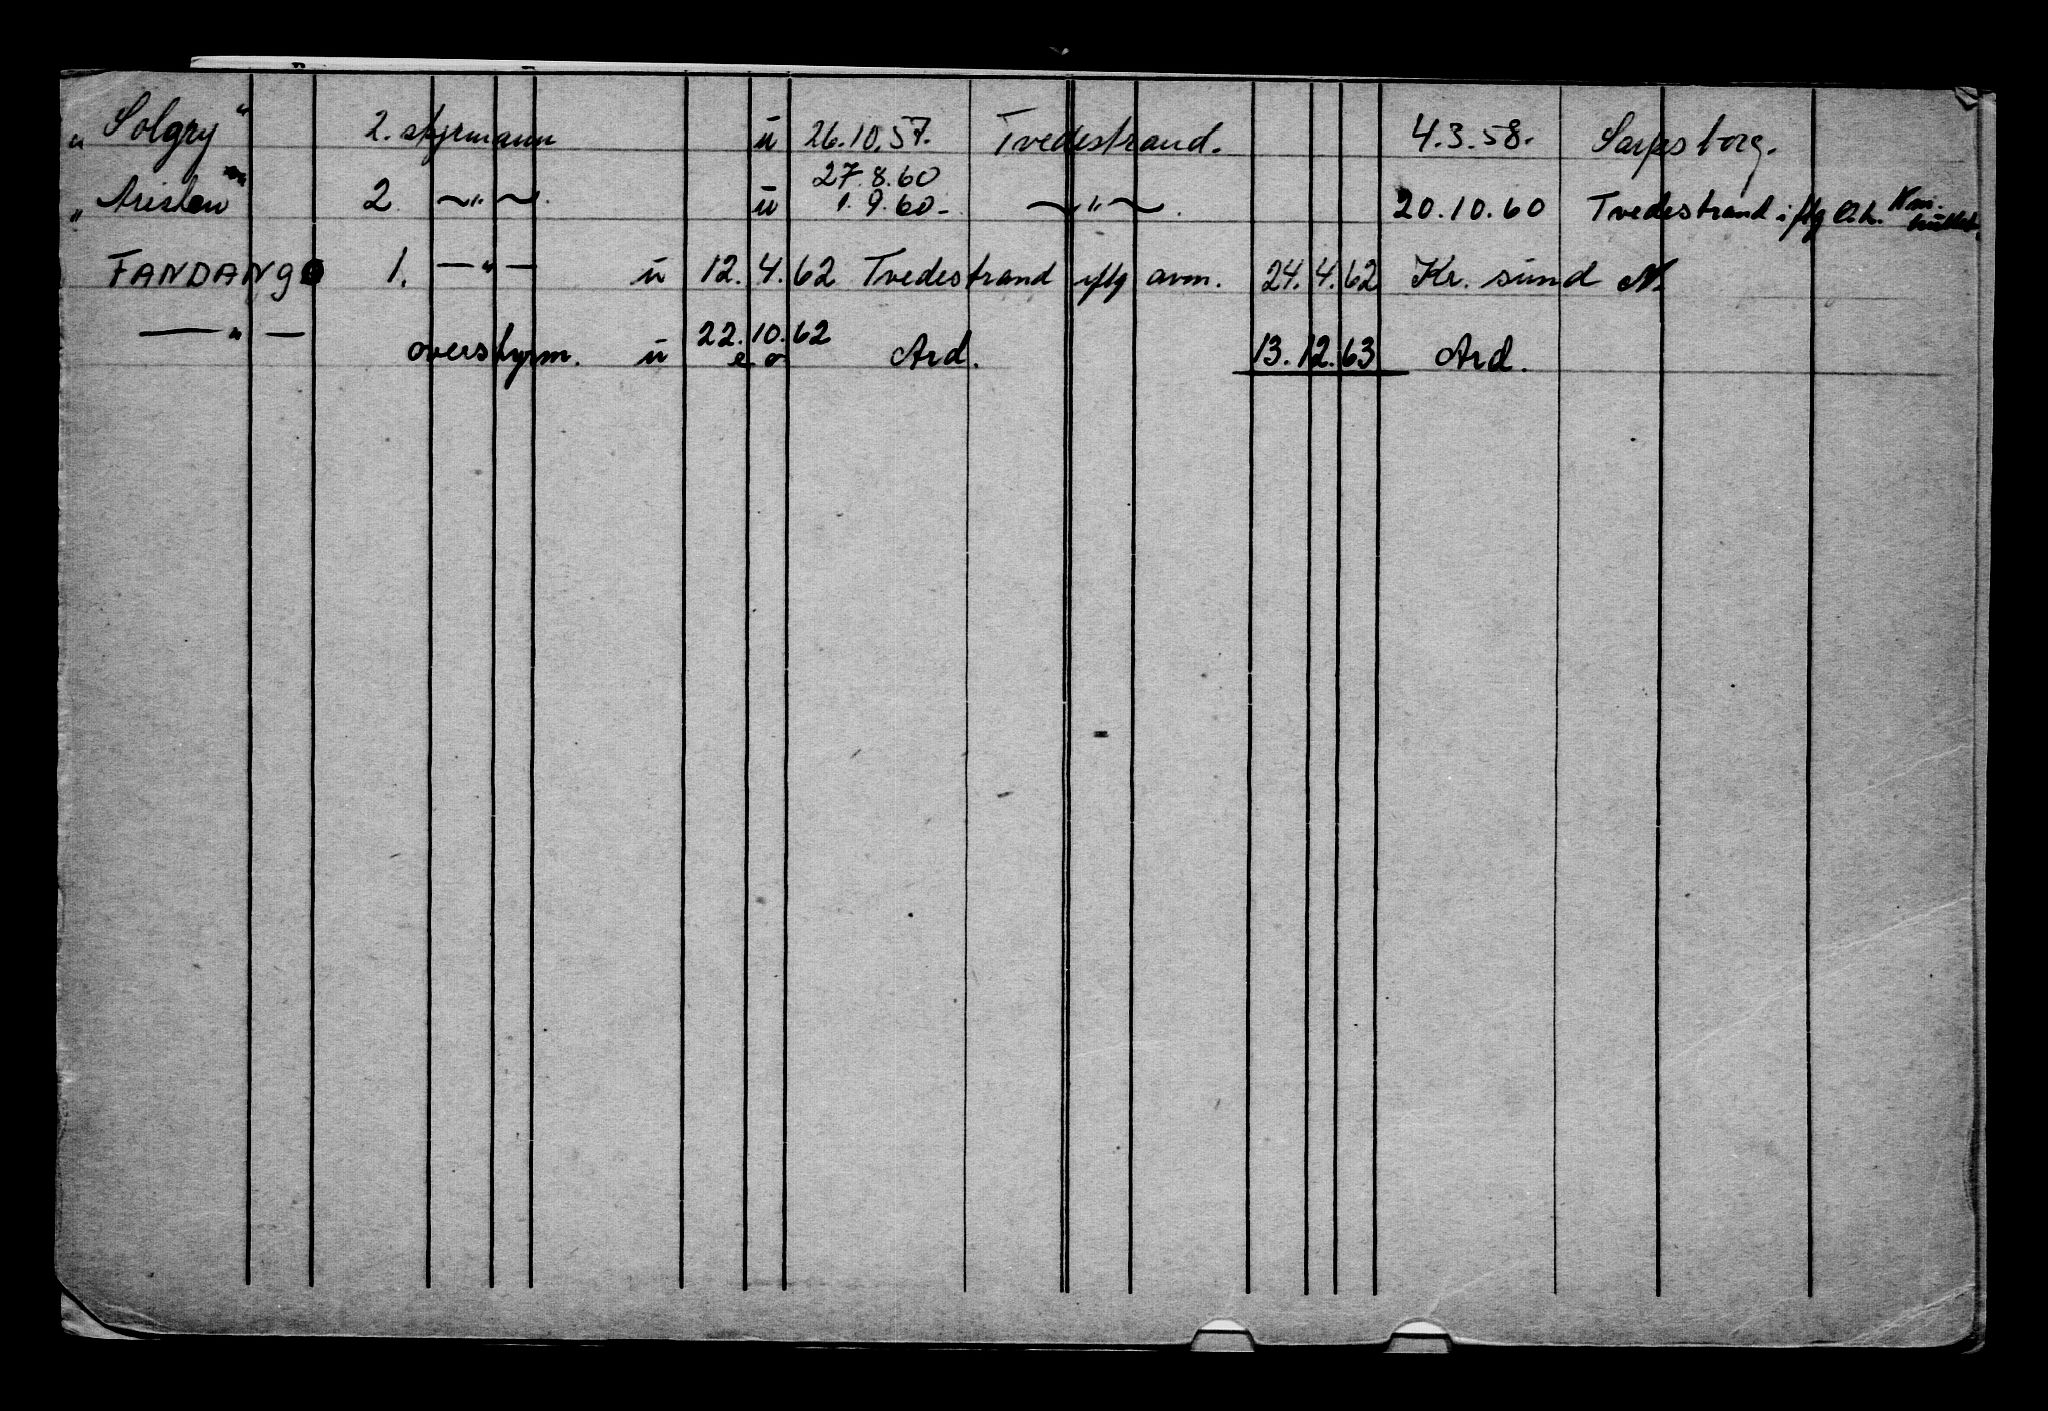 „ Solgry“ 2. styrmann u 26.10.57. Tvedestrand. 4.3.58. Sarpsborg.
27.8.60
„ 2. ~"~. u 1.9.60- ~"~. 20.10.60 Tvedestrand iflg
FANDANGO 1. —"— u 12.4.62 Tvedestrand iflg avm. 24.4.62 Kr. sund N.
22.10.62
—"— overstyrm. u Ard. 13.12.63 Ard.